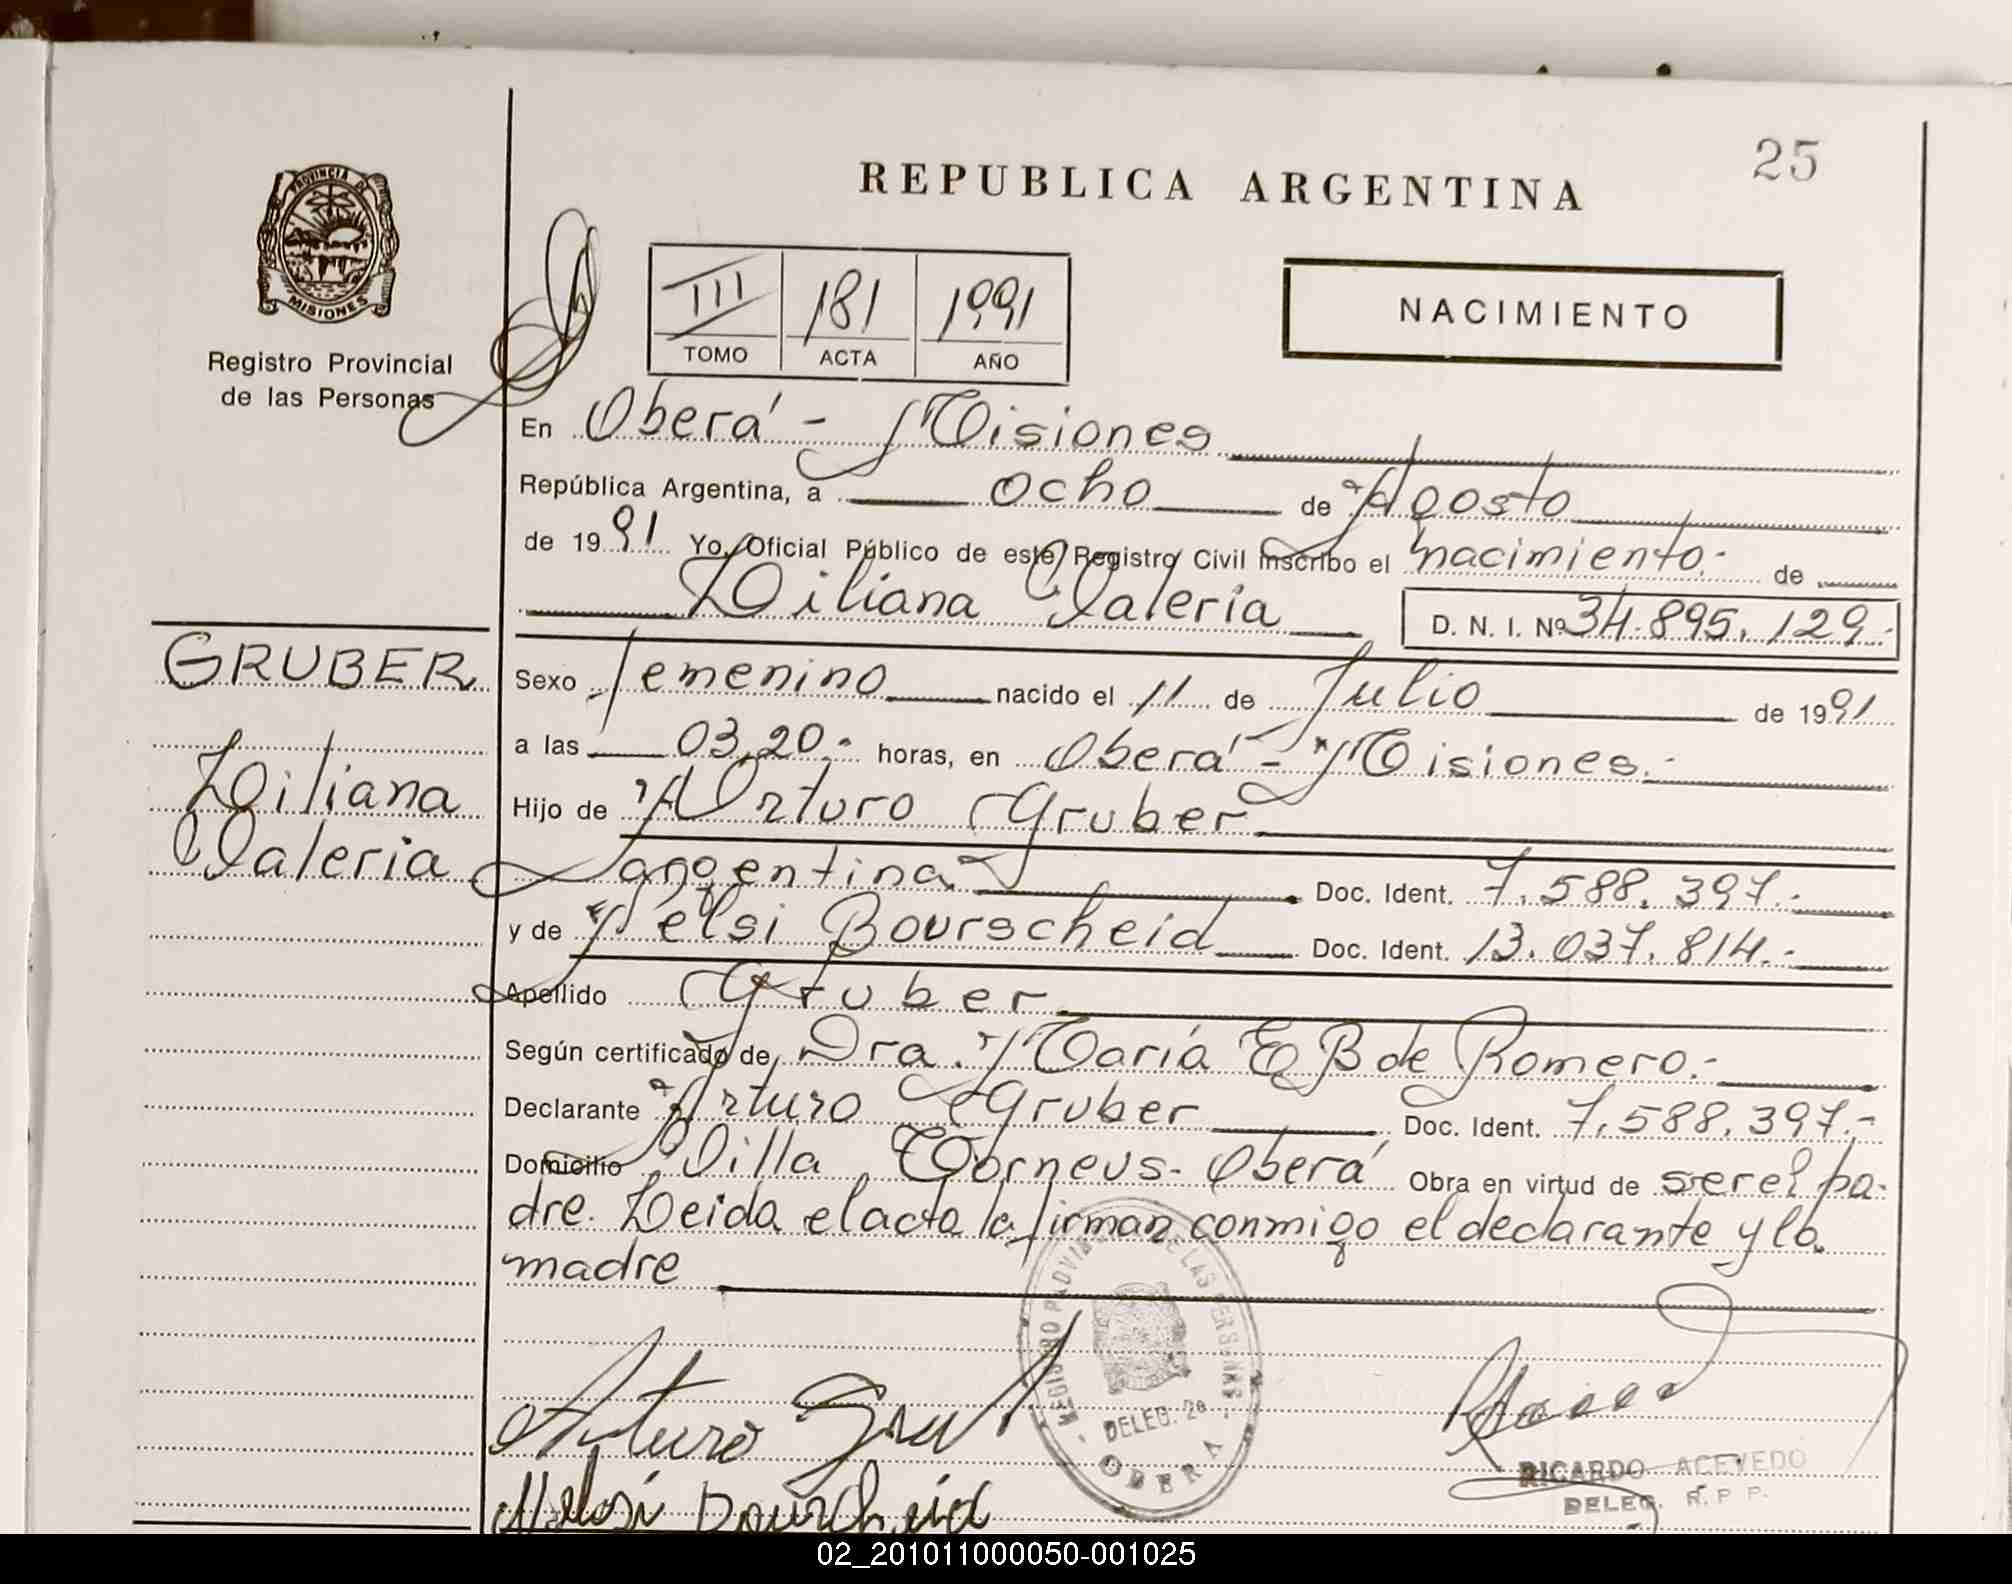 25
REPUBLICA ARGENTINA
PROVINCIA DE
MISIONES
Registro Provincial
de las Personas
III 181 1991
TOMO ACTA AÑO
NACIMIENTO
En Oberá - Misiones
República Argentina, a ocho de Agosto
de 1991 Yo, Oficial Público de este Registro Civil inscribo el nacimiento.- de
Liliana Valeria D. N. I. Nº 34.895.129.-
GRUBER
Liliana
Valeria
Sexo femenino nacido el 11 de Julio de 1991
a las 03,20.- horas, en Oberá - Misiones.-
Hijo de Arturo Gruber
argentina Doc. Ident. 7.588.397.-
y de Nelsi Bourscheid Doc. Ident. 13.037.814.-
Apellido Gruber
Según certificado de Dra. María E B de Romero.-
Declarante Arturo Gruber Doc. Ident. 7.588.397.-
Domicilio Villa Torneus - Oberá Obra en virtud de ser el pa-
dre. Leida el acta la firman conmigo el declarante y la
madre
REGISTRO PROVINCIAL DE LAS PERSONAS
DELEG. 2a
OBERA
Arturo
Nelsi Bourscheid
RICARDO ACEVEDO
DELEG. R. P. P.
02_201011000050-001025